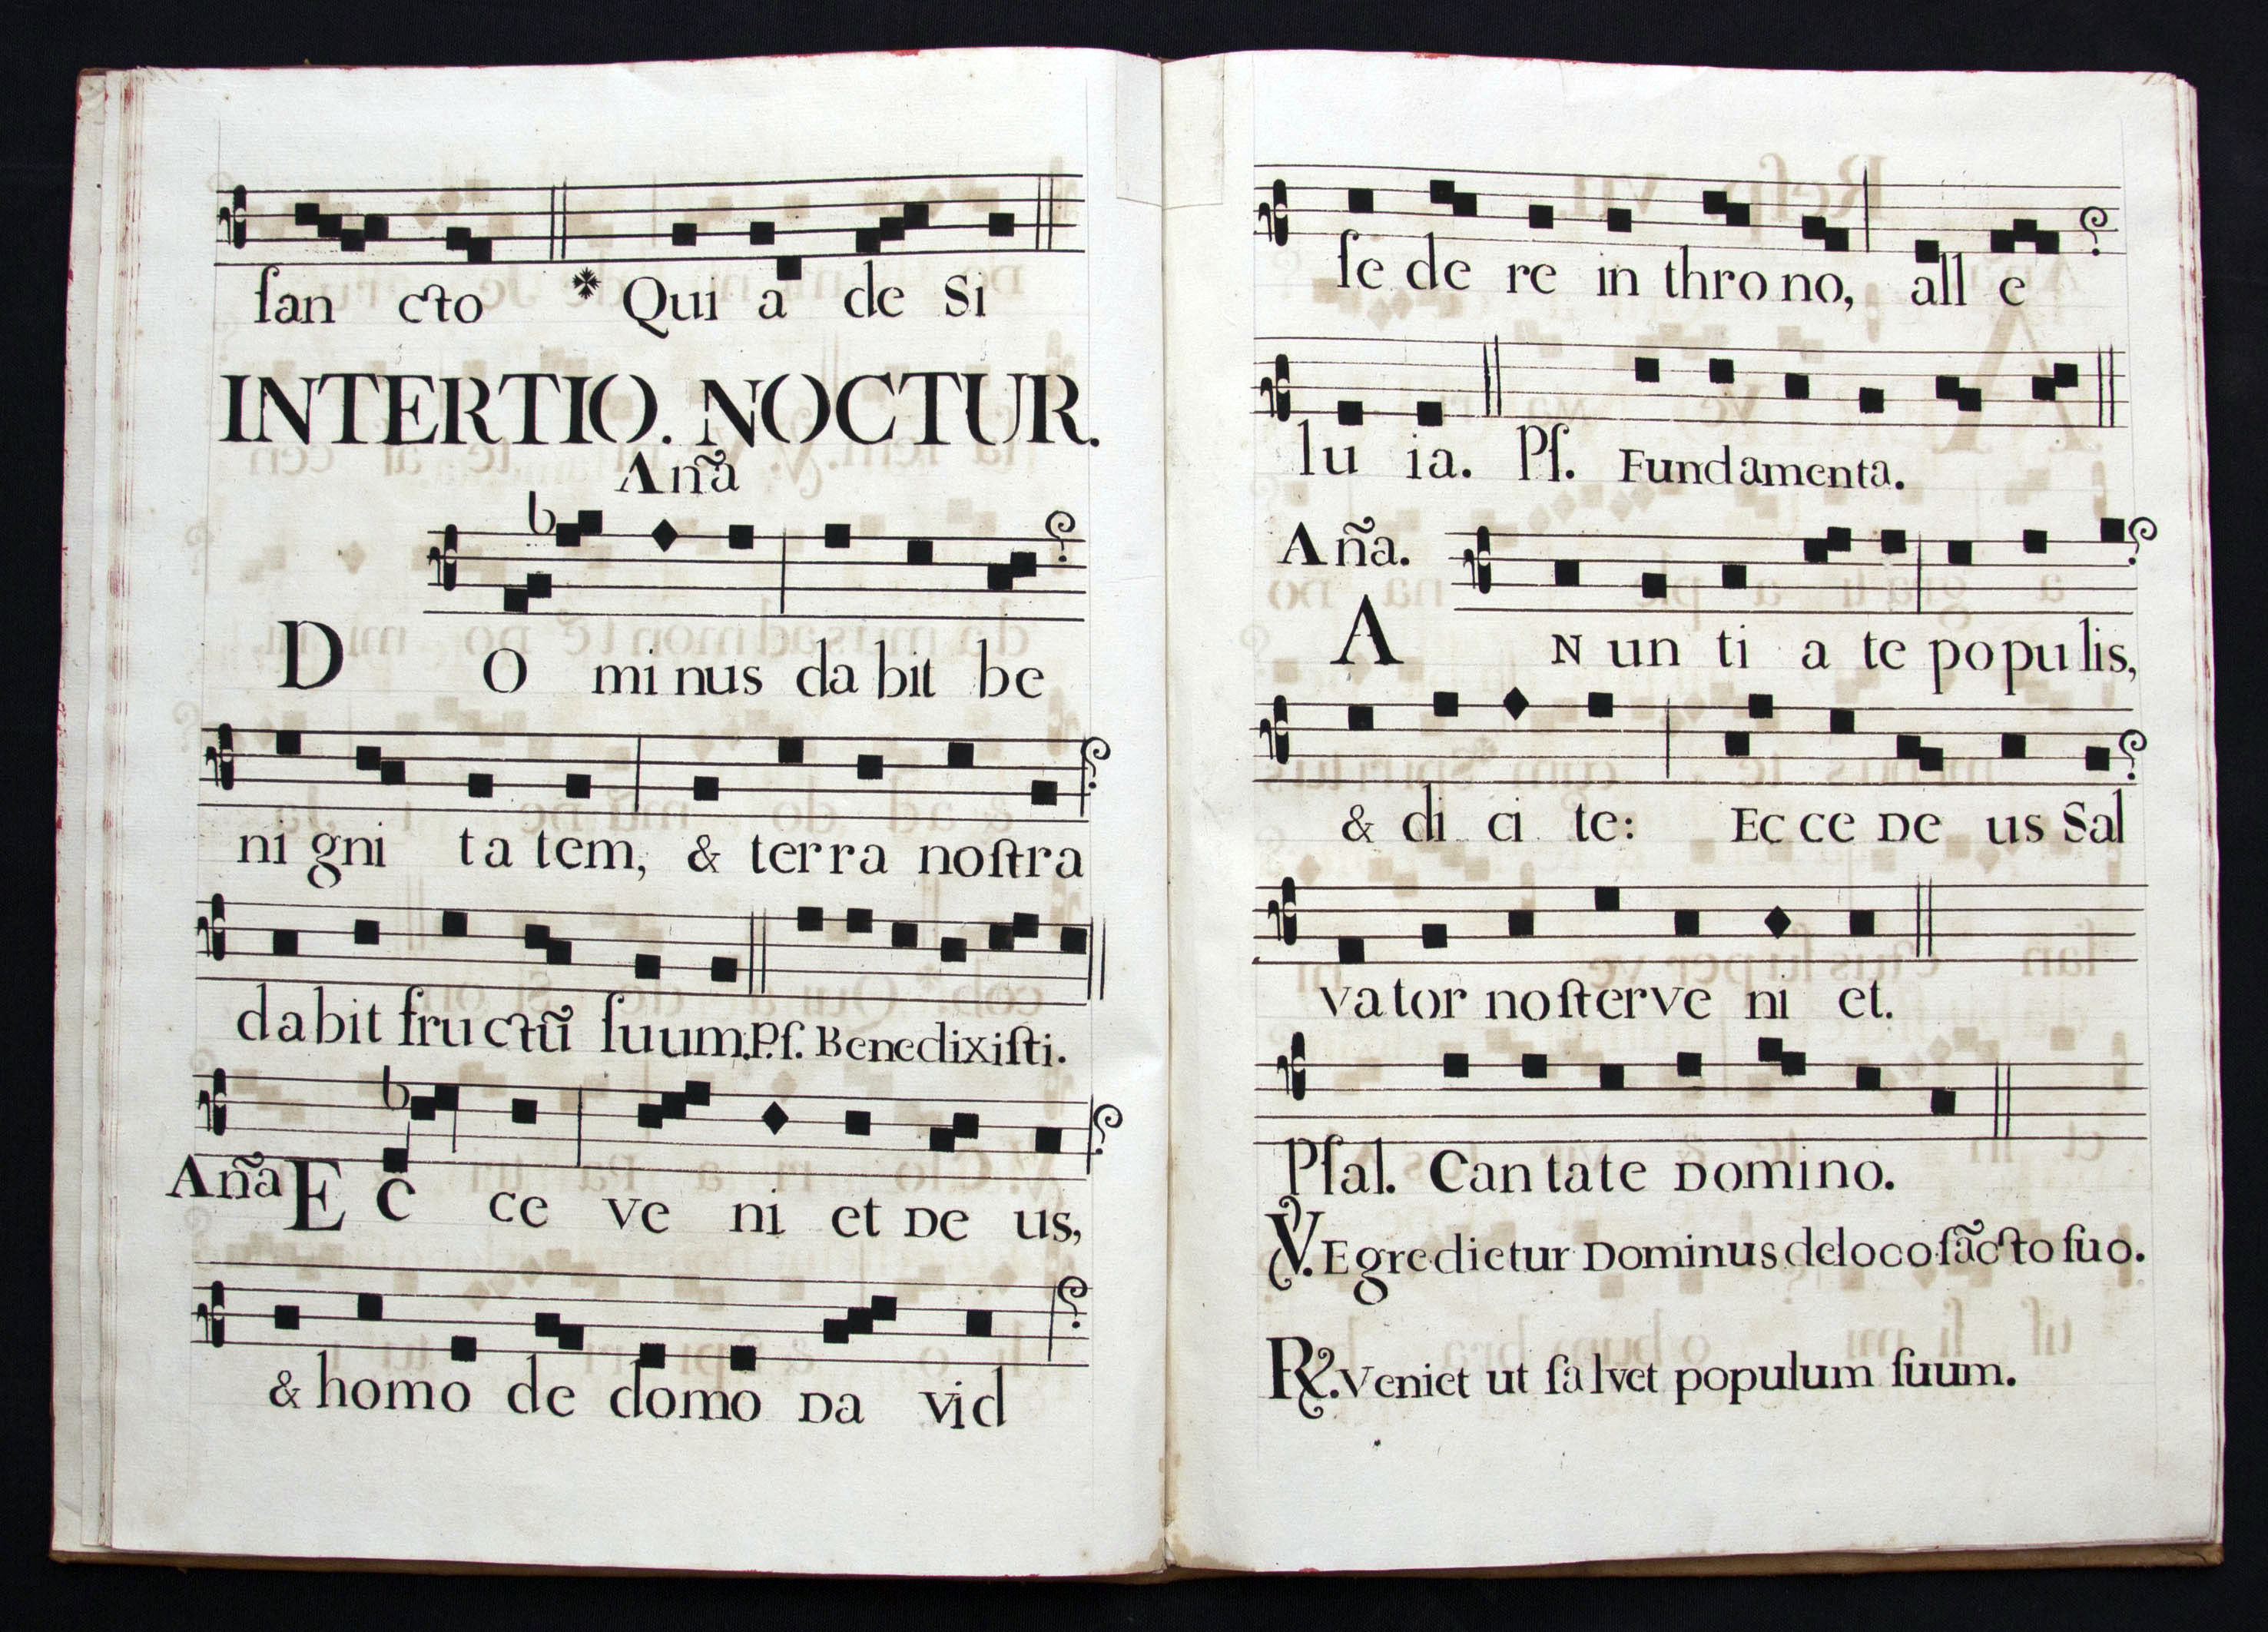 ſan cto * Qui a de Si
INTERTIO. NOCTUR.
Aña
D O mi nus da bit be
ni gni ta tem, & ter ra noſtra
dabit fructũ ſuum. Pſ. Benedixiſti.
Aña E c ce ve ni et De us,
& homo de domo Da vid
ſe de re in thro no, all e
lu ia. Pſ. Fundamenta.
Aña.
A N un ti a te populis,
& di ci te: Ec ce De us Sal
va tor noſter ve ni et.
Pſal. Cantate Domino.
℣. Egredietur Dominus de loco ſãcto ſuo.
℟. Veniet ut ſalvet populum ſuum.